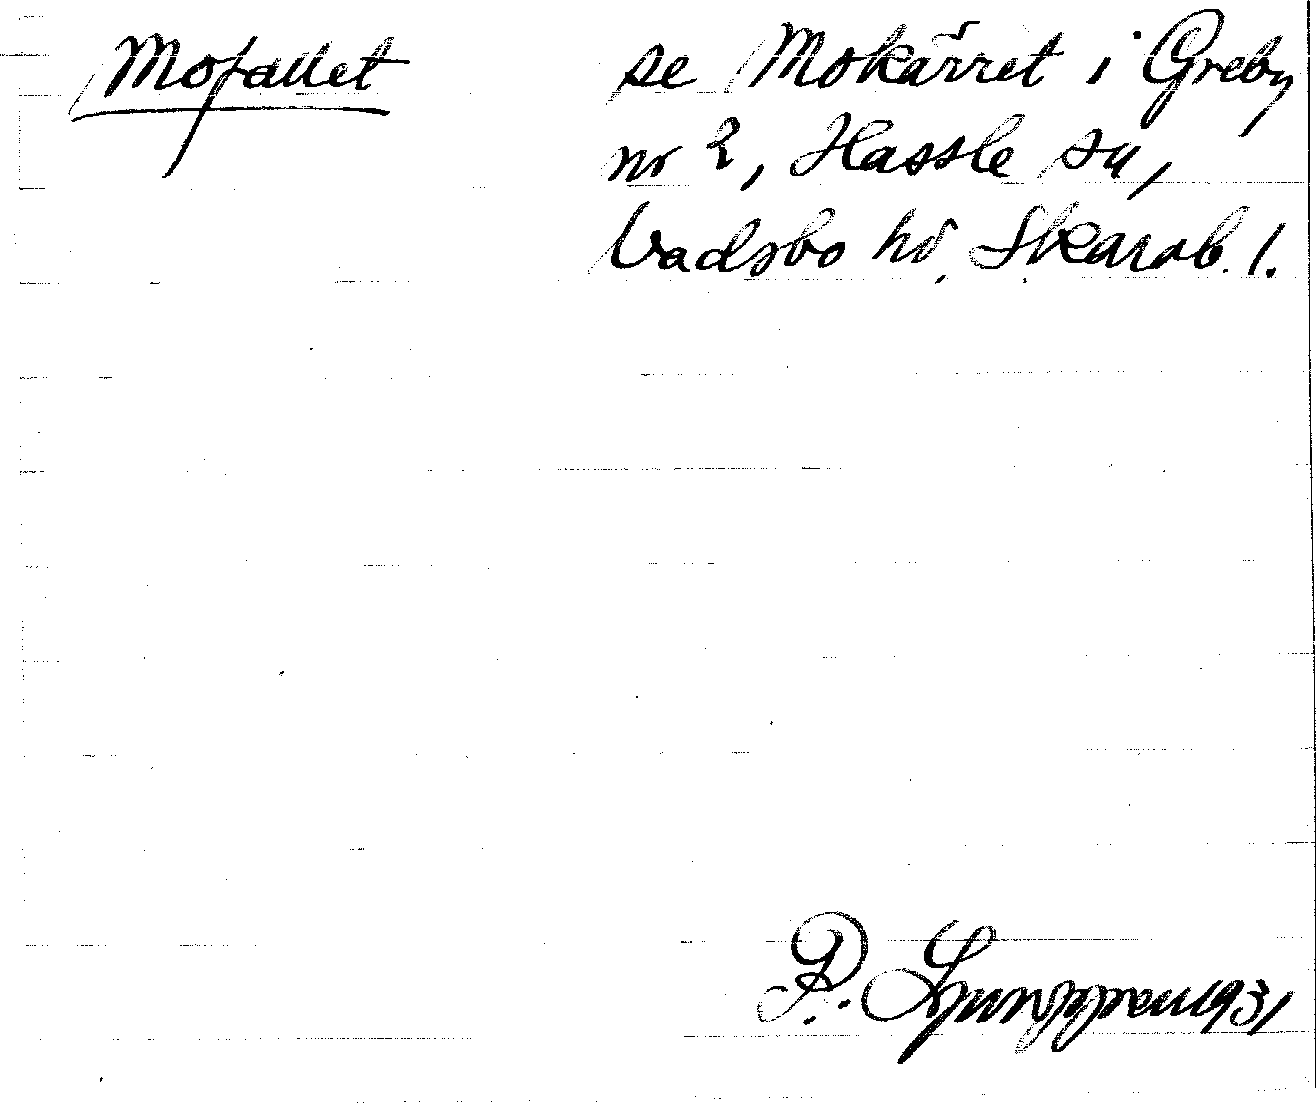 Mofallet
se Mokärret i Greby
nr 2, Hassle sn,
Vadsbo hd, Skarab. l.
P. Ljunggren 1931